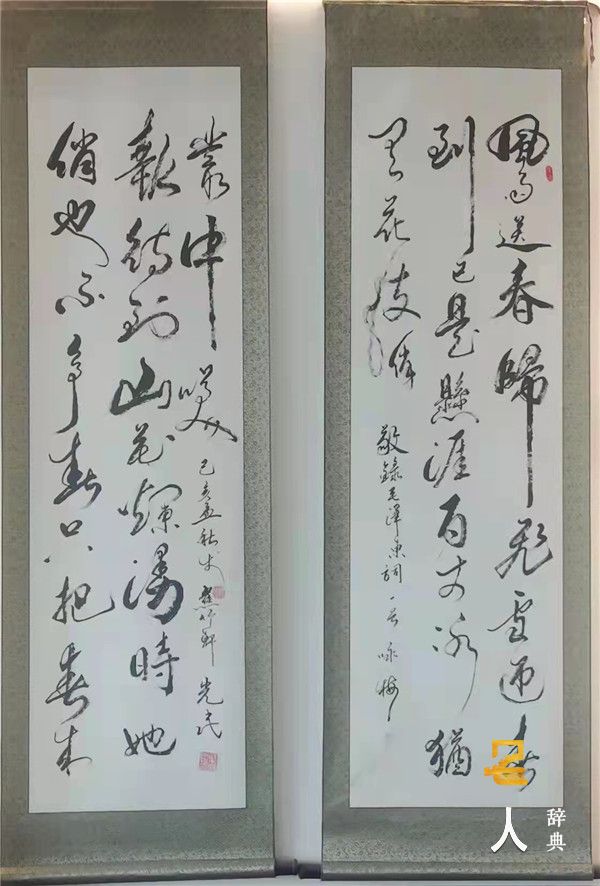 風雨送春歸飛雪迎春
到已是懸涯百丈冰猶
有花枝俏
敬錄毛澤東詞一首 咏梅
俏也不爭春只把春來
報待到山花爛漫時她
叢中笑
己亥孟秋
名人
辞典